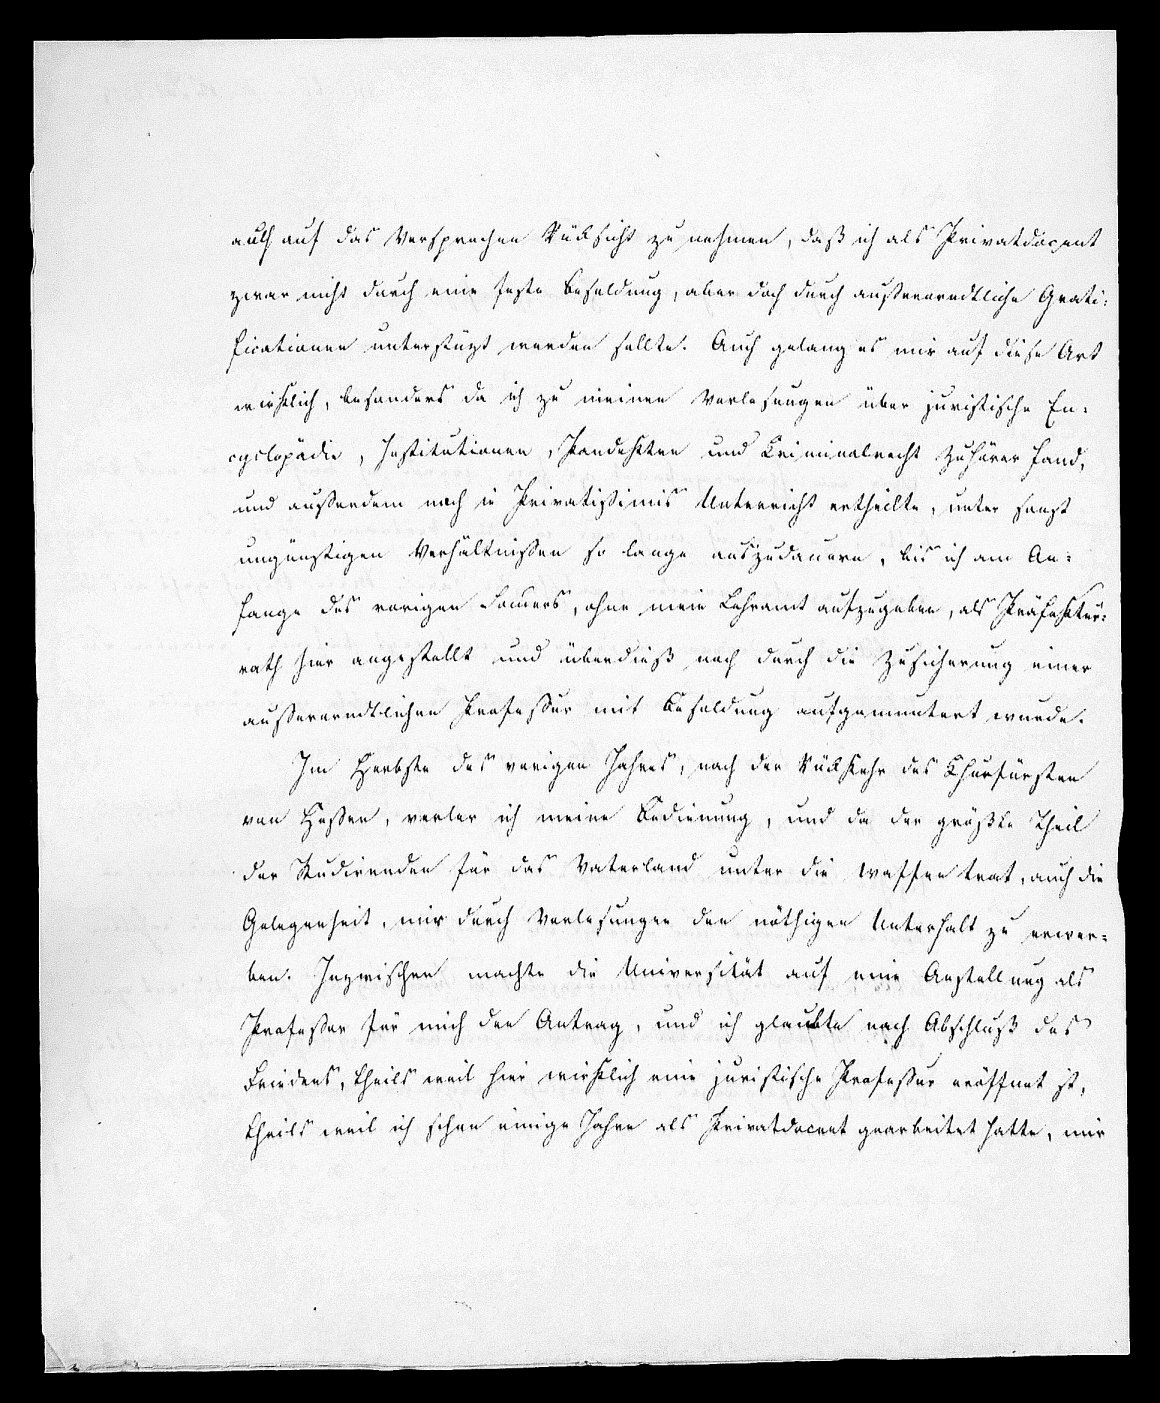 auch auf das Versprechen Rüksicht zu nehmen, daß ich als Privatdocent
zwar nicht durch eine feste Besoldung, aber doch durch außerorndtliche Grati-
ficationen unterstüzt werden sollte. Auch gelang es mir auf diese Art
wirklich, besonders da ich zu meinen Vorlesungen über juristische En-
cyclopädie, Institutionen, Pandekten und Criminalrecht Zuhörer fand,
und außerdem noch in Privatißimis Unterricht ertheilte, unter sonst
ungünstigen Verhältnißen so lange auszudauern, bis ich am An-
fange des vorigen Somers, ohne mein Lehramt aufzugeben, als Präfektur-
rath hier angestellt und überdieß noch durch die Zusicherung einer
außerorndtlichen Profeßur mit Besoldung aufgemuntert wurde.
Im Herbste des vorigen Jahres, nach der Rükkehr des Churfürsten
von Heßen, verlor ich meine Bedienung, und da der größte Theil
der Studirenden für das Vaterland unter die Waffen trat, auch die
Gelegenheit, mir durch Vorlesungen den nöthigen Unterhalt zu erwer-
ben. Inzwischen machte die Universität auf eine Anstellung als
Profeßor für mich den Antrag, und ich glaubte nach Abschluß des
Friedens, theils weil hier wirklich eine juristische Profeßur eröffnet ist,
theils weil ich schon einige Jahre als Privatdocent gearbeitet hatte, mir